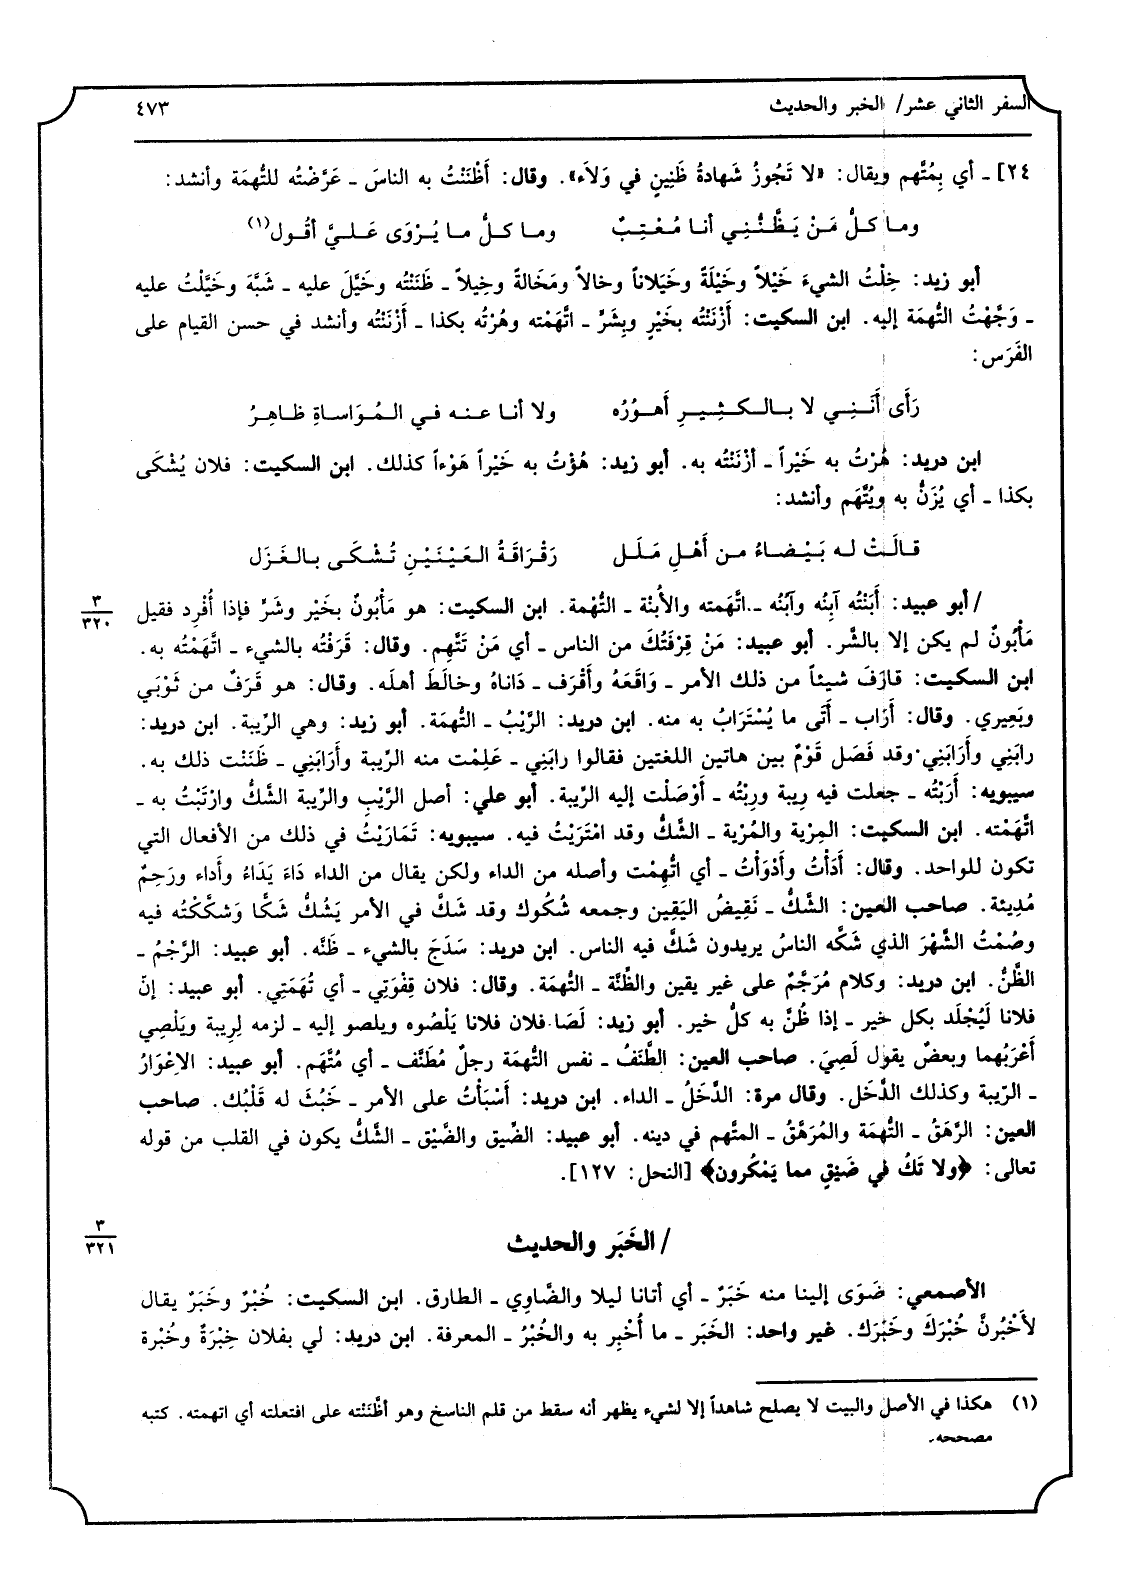 السفر الثاني عشر/ الخبر والحديث
٤٧٣
٢٤] ـ أي بِمُتَّهم ويقال: «لا تَجُوزُ شَهادةُ ظَنِينٍ في وَلاَء». وقال: أَظْنَنْتُ به الناسَ ـ عَرَّضْتُه للتُّهمَة وأنشد:
وما كلُّ مَنْ يَظَّنُّنِي أنا مُعْتِبٌ وما كلُّ ما يُرْوَى عَلَيَّ أقُول(١)
أبو زيد: خِلْتُ الشيءَ خَيْلاً وخَيْلَةً وخَيَلاناً وخالاً ومَخَالةً وخِيلاً ـ ظَنَنْتُه وخَيَّلَ عليه ـ شَبَّهَ وخَيَّلْتُ عليه
ـ وَجَّهْتُ التُّهمَة إليه. ابن السكيت: أَزْنَنْتُه بخَيْرٍ وبِشَرٍّ ـ اتَّهَمْته وهُرْتُه بكذا ـ أَزْنَنْتُه وأنشد في حسن القيام على
الفَرَس:
رَأَى أَنَّنِي لا بالكثِيرِ أَهورُه ولا أنا عنه في المُوَاساةِ ظاهِرُ
ابن دريد: هُرْتُ به خَيْراً ـ أزْنَنْتُه به. أبو زيد: هُؤْتُ به خَيْراً هَوْءاً كذلك. ابن السكيت: فلان يُشْكَى
بكذا ـ أي يُزَنُّ به ويُتَّهَم وأنشد:
قالَتْ له بَيْضاءُ من أَهْلِ مَلَل رَقْراقَةُ العَيْنَيْنِ تُشْكَى بالغَزَل
/ أبو عبيد: أَبَنْتُه آبِنُه وآبُنُه ـ اتَّهَمته والأُبْنة ـ التُّهْمة. ابن السكيت: هو مَأْبُونٌ بخَيْر وشَرٍّ فإذا أُفْرِد فقيل
٣
٣٢٠
مَأْبُونٌ لم يكن إلا بالشَّر. أبو عبيد: مَنْ قِرْفَتُكَ من الناس ـ أي مَنْ تَتَّهِم. وقال: قَرَفْتُه بالشيء ـ اتَّهَمْتُه به.
ابن السكيت: قارَفَ شيئاً من ذلك الأمر ـ وَاقَعَهُ وأَقْرَف ـ دَاناهُ وخالَطَ أهلَه. وقال: هو قَرَفٌ من ثَوْبَي
وبَعِيري. وقال: أَرَاب ـ أَتَى ما يُسْتَرَابُ به منه. ابن دريد: الرَّيْبُ ـ التُّهمَة. أبو زيد: وهي الرِّيبة. ابن دريد:
رابَنِي وأَرَابَنِي وقد فَصَل قَوْمٌ بين هاتين اللغتين فقالوا رابَنِي ـ عَلِمْت منه الرِّيبة وأَرَابَنِي ـ ظَنَنْت ذلك به.
سيبويه: أَرَبْتُه ـ جعلت فيه رِيبة ورِبْتُه ـ أَوْصَلْت إليه الرِّيبة. أبو علي: أصل الرَّيْبِ والرِّيبة الشَّكُّ وارْتَبْتُ به ـ
اتَّهَمْته. ابن السكيت: المِرْية والمُرْية ـ الشَّكُّ وقد امْتَرَيْتُ فيه. سيبويه: تَمَارَيْتُ في ذلك من الأفعال التي
تكون للواحد. وقال: أَدَأْتُ وأَدْوَأْتُ ـ أي اتُّهِمْت وأصله من الداء ولكن يقال من الداء دَاءَ يَدَاءُ وأَداء ورَحِمٌ
مُدِيئة. صاحب العين: الشَّكُّ ـ نَقِيضُ اليَقِين وجمعه شُكُوك وقد شَكَّ في الأمر يَشُكُّ شَكًّا وَشَكَّكْتُه فيه
وصُمْتُ الشَّهْرَ الذي شَكَّه الناسُ يريدون شَكَّ فيه الناس. ابن دريد: سَدَجَ بالشيء ـ ظَنَّه. أبو عبيد: الرَّجْمُ ـ
الظَّنُّ. ابن دريد: وكلام مُرَجَّمٌ على غير يقين والظِّنَّة ـ التُّهمَة. وقال: فلان قِفْوَتِي ـ أي تُهَمَتِي. أبو عبيد: إنّ
فلانا لَيُجْلَد بكل خير ـ إذا ظُنَّ به كلُّ خير. أبو زيد: لَصَا فلان فلانا يَلْصُوه ويلصو إليه ـ لزمه لِرِيبة ويَلْصِي
أَعْرَبُهما وبعضٌ يقول لَصِيَ. صاحب العين: الطَّنَفُ ـ نفس التُّهمَة رجلٌ مُطَنَّف ـ أي مُتَّهَم. أبو عبيد: الاِعْوَارُ
ـ الرِّيبة وكذلك الدَّخَل. وقال مرة: الدَّخَلُ ـ الداء. ابن دريد: أَسْبَأْتُ على الأمر ـ خَبُثَ له قَلْبُك. صاحب
العين: الرَّهَقُ ـ التُّهمَة والمُرَهَّقُ ـ المتَّهم في دينه. أبو عبيد: الضِّيق والضَّيْق ـ الشَّكُّ يكون في القلب من قوله
تعالى: ﴿ولا تَكُ في ضَيْقٍ مما يَمْكُرون﴾ [النحل: ١٢٧].
/ الخَبَر والحديث
٣
٣٢١
الأصمعي: ضَوَى إلينا منه خَبَرٌ ـ أي أتانا ليلا والضَّاوِي ـ الطارق. ابن السكيت: خُبْرٌ وخَبَرٌ يقال
لأَخْبُرنَّ خُبْرَكَ وخَبَرَك. غير واحد: الخَبَر ـ ما أُخْبِر به والخُبْرُ ـ المعرفة. ابن دريد: لي بفلان خِبْرَةٌ وخُبْرة
(١) هكذا في الأصل والبيت لا يصلح شاهداً إلا لشيء يظهر أنه سقط من قلم الناسخ وهو أظَّنَنْته على افتعلته أي اتهمته. كتبه
مصححه.